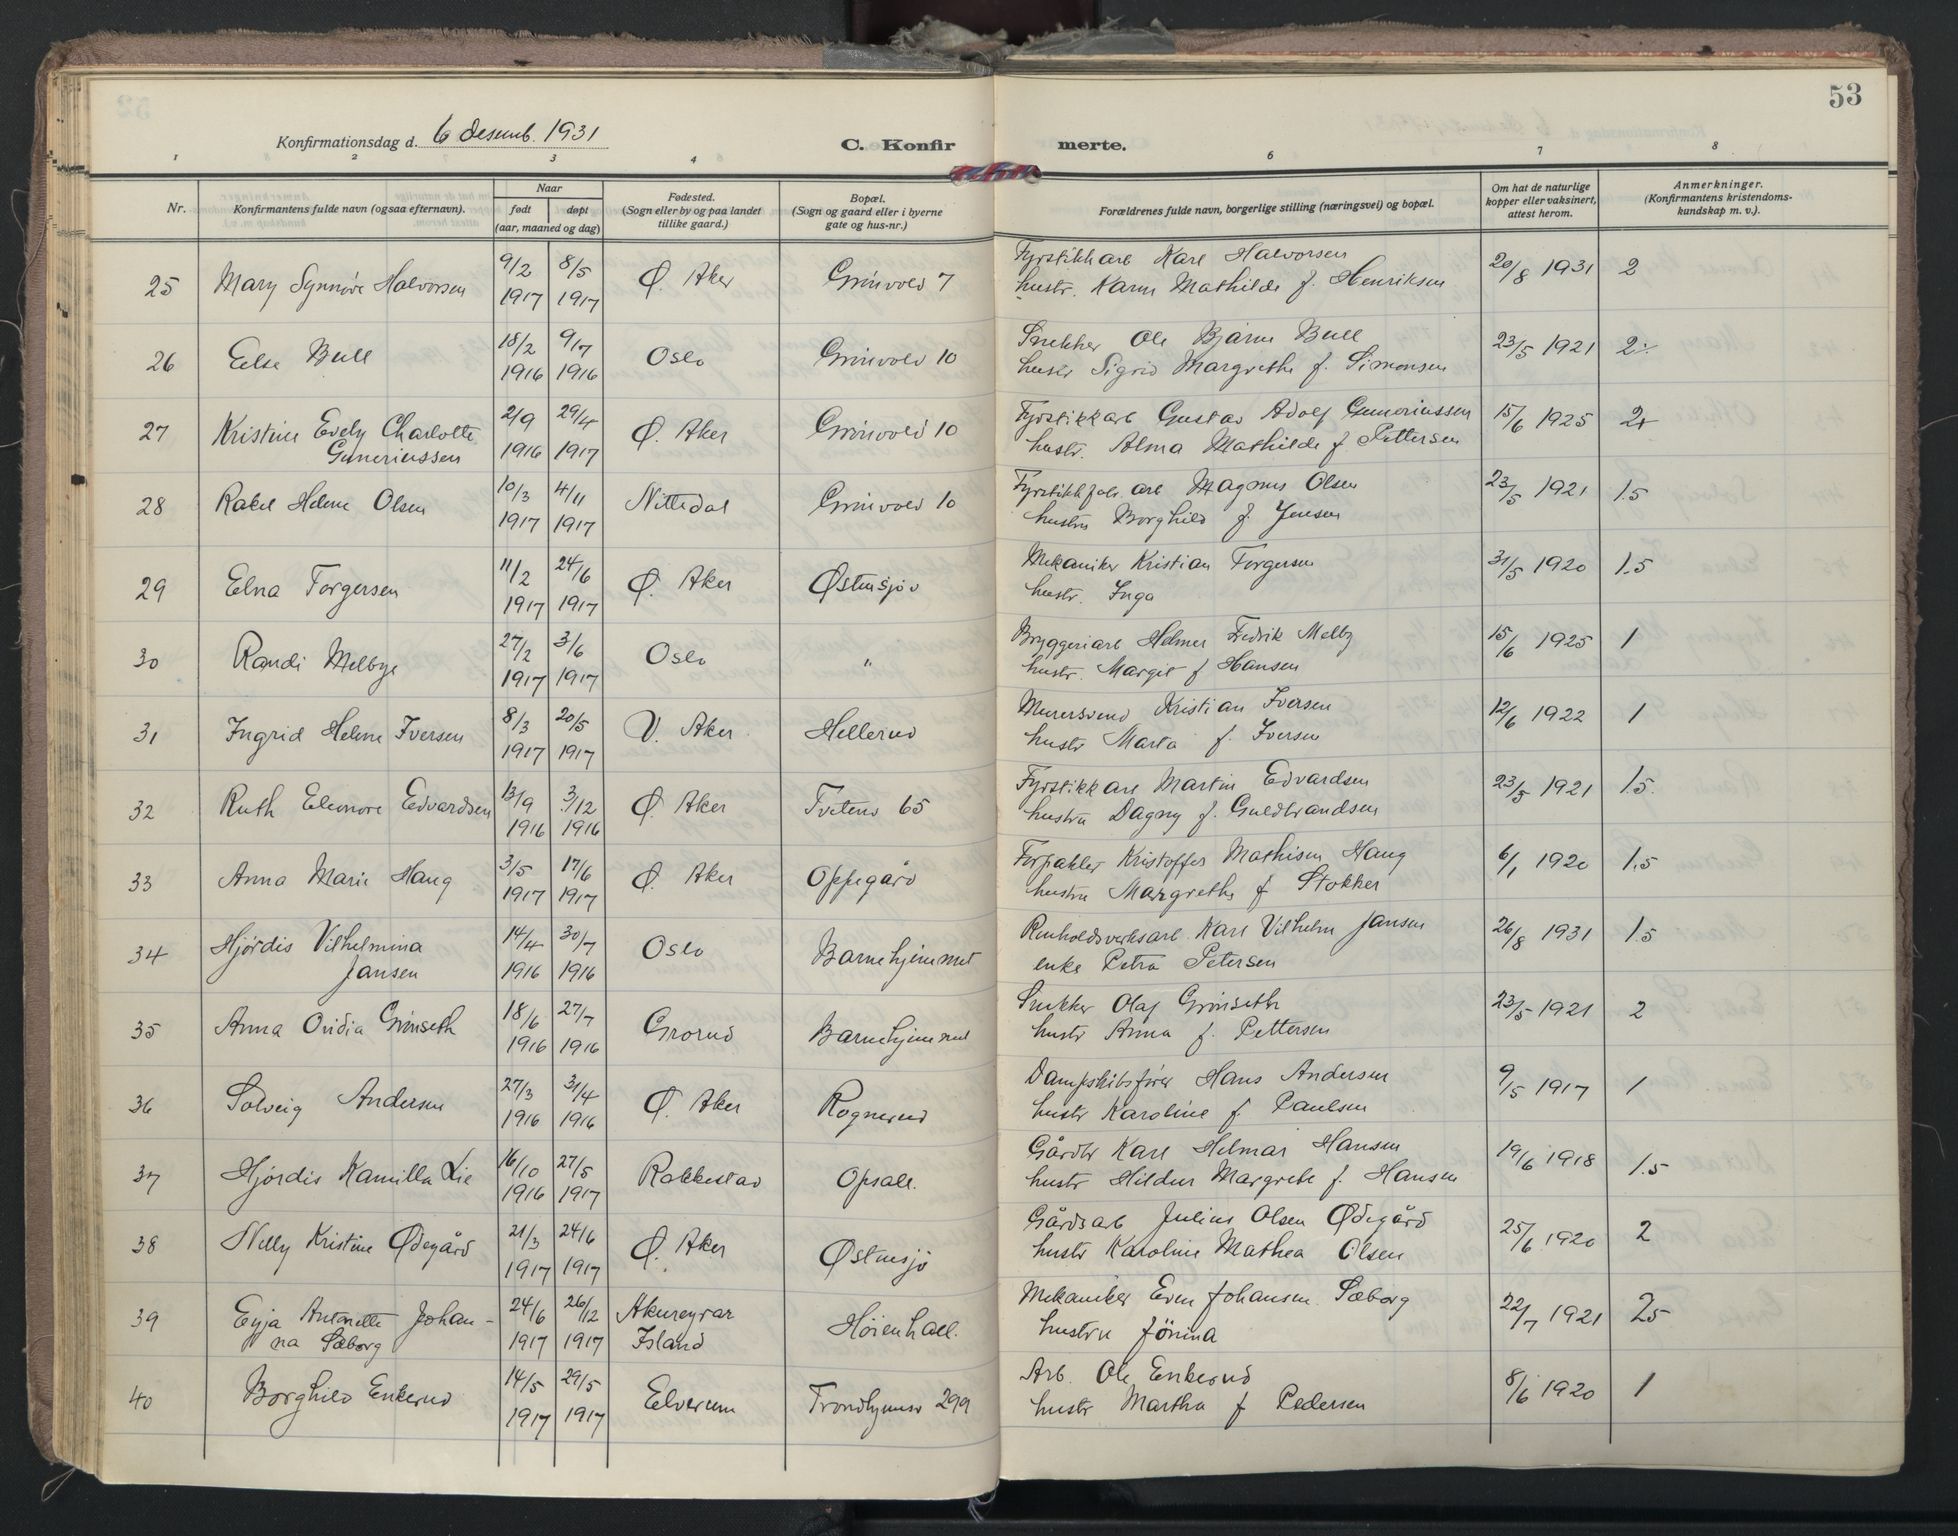 53
Konfirmationsdag d. 6 desemb. 1931
C. Konfirmerte.
1 2 3 4 6 7 8
Nr.
Konfirmantens fulde navn (ogsaa efternavn).
Naar
født døpt
(aar, maaned og dag)
Fødested.
(Sogn eller by og paa landet
tillike gaard.)
Bopæl.
(Sogn og gaard eller i byerne
gate og hus-nr.)
Forældrenes fulde navn, borgerlige stilling (næringsvei) og bopæl.
Om hat de naturlige
kopper eller vaksinert,
attest herom.
Anmerkninger.
(Konfirmantens kristendoms-
kundskap m. v.).
25 Mary Synnöve Halvorsen 9/2 1917 8/5 1917 Ø. Aker Grönvold 7 Fyrstikkarb Karl Halvorsen 20/8 1931 2
hustr. Karen Mathilde f. Henriksen
26 Else Bull 18/2 1916 9/7 1916 Oslo Grönvold 10 Snekker Ole Bjarne Bull 23/5 1921 2
hustr Sigrid Margrethe f. Simonsen
27 Kristine Evely Charlotte 2/9 1916 29/4 1917 Ø. Aker Grönvold 10 Fyrstikkarb Gustav Adolf Guneriussen 15/6 1925 2
Guneriussen hustr. Alma Mathilde f. Pettersen
28 Rakel Helene Olsen 10/3 1917 4/11 1917 Nittedal Grönvold 10 Fyrstikkfabr. arb Magnus Olsen 23/5 1921 1.5
hustru Borghild f. Jensen
29 Elna Torgersen 11/2 1917 24/6 1917 Ø. Aker Østensjöv Mekaniker Kristian Torgersen 31/5 1920 1.5
hustr. Inga
30 Randi Melbye 27/2 1917 3/6 1917 Oslo " Bryggeriarb Helmer Fredrik Melby 15/6 1925 1
hustr. Margit f Hansen
31 Ingrid Helene Iversen 8/3 1917 20/5 1917 V. Aker Hellerud Murersvend Kristian Iversen 12/6 1922 1
hustr Marta f. Iversen
32 Ruth Eleonore Edvardsen 13/9 1916 3/12 1916 Ø. Aker Tvetenv 65 Fyrstikkarb Martin Edvardsen 23/5 1921 1.5.
hustru Dagny f. Guldbrandsen
33 Anna Marie Haug 3/5 1917 17/6 1917 Ø. Aker Oppegård Forpakter Kristoffer Mathisen Haug 6/1 1920 1.5
hustru Margrethe f Stokker
34 Hjördis Vilhelmina 14/4 1916 30/7 1916 Oslo Barnehjemmet Renholdsverksarb. Karl Vilhelm Jansen 26/8 1931 1.5
Jansen enke Petra Petersen
35 Anna Ovidia Grönseth 18/6 1916 27/7 1916 Grorud Barnehjemmet Snekker Olaf Grönseth 23/5 1921 2
hustr Anna f. Pettersen
36 Solveig Andersen 27/3 1916 31/4 1916 Ø. Aker Rognerud Dampskibsförer Hans Andersen 9/5 1917 1
hustr Karoline f. Paulsen
37 Hjördis Kamilla Lie 16/10 1916 27/5 1917 Rakkestad Opsall. Gårdbr Karl Hilmar Hansen 19/6 1918 1.5
hustr Hildur Margrete f. Hansen
38 Nelly Kristine Ødegård 21/3 1917 24/6 1917 Ø. Aker Østensjö Gårdsarb Julius Olsen Ødegård 25/6 1920 2
hustr Karoline Mathea Olsen
39 Eyja Antonette Johan- 24/6 1917 26/12 1917 Akureyrar Höienhall. Mekaniker Even Johansen Sæborg 22/7 1921 2.5
na Sæborg Island hustru Jónina
40 Borghild Enkerud 14/5 1917 29/5 1917 Elverum Trondhjemsv 299 Arb. Ole Enkerud 8/6 1920 1
hustr Martha f Pedersen